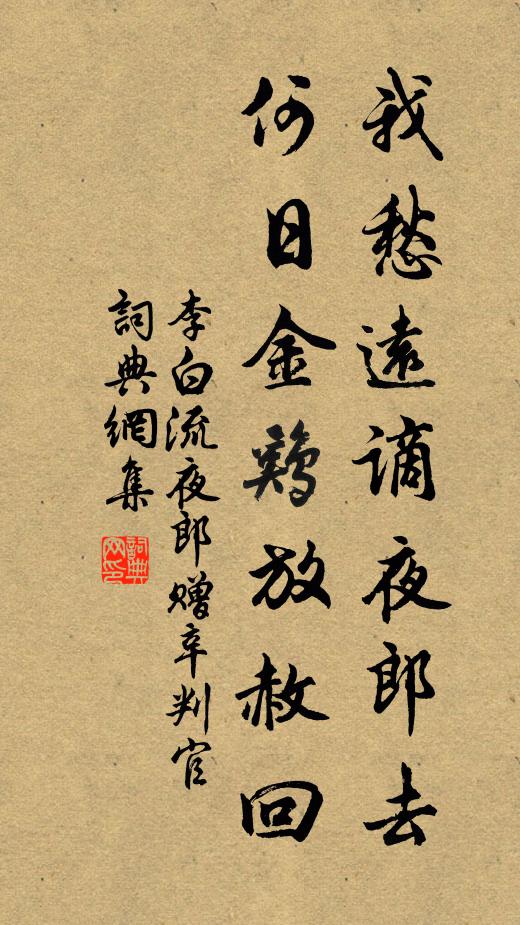 我愁遠謫夜郎去
何日金鷄放赦回
李白流夜郎贈辛判官
詞典網集
詞典
网印